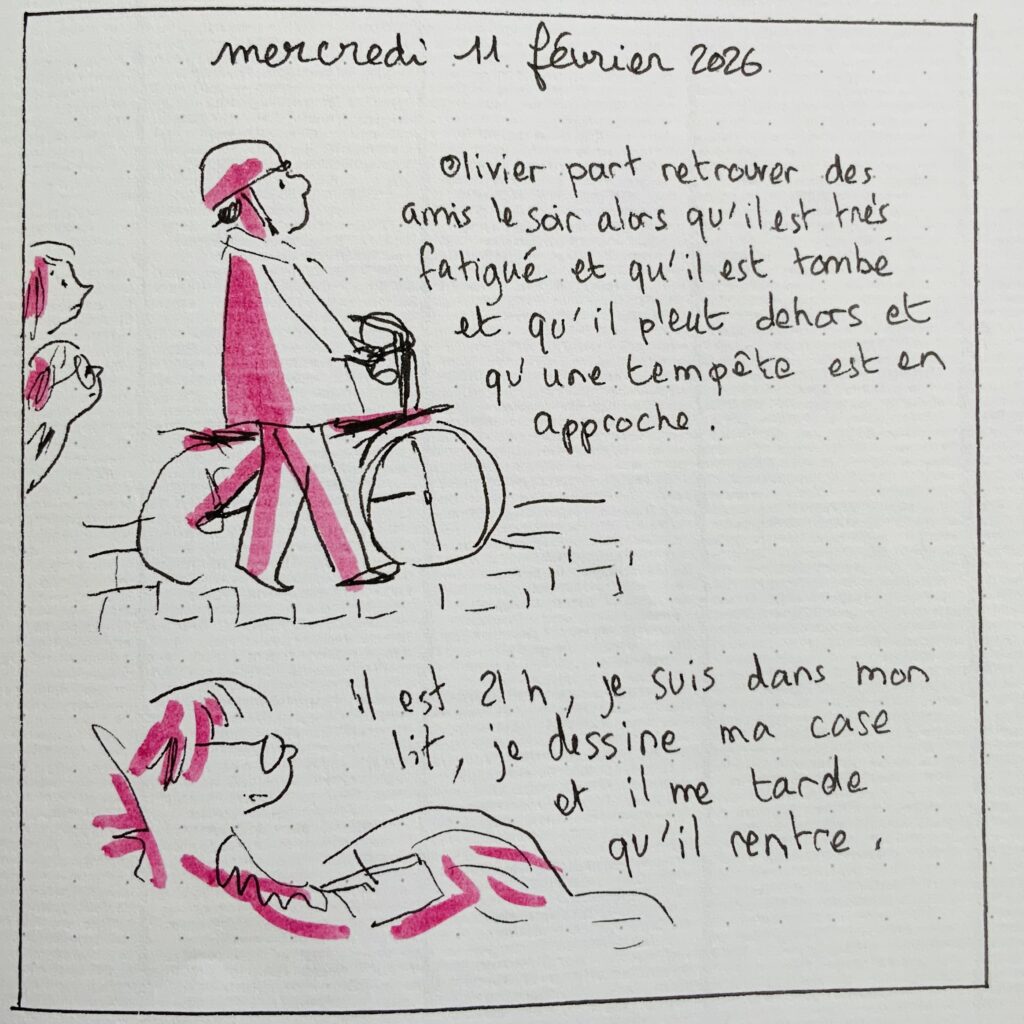 mercredi 11 février 2026
Olivier part retrouver des
amis le soir alors qu'il est très
fatigué et qu'il est tombé
et qu'il pleut dehors et
qu'une tempête est en
approche.
Il est 21 h, je suis dans mon
lit, je dessine ma case
et il me tarde
qu'il rentre.